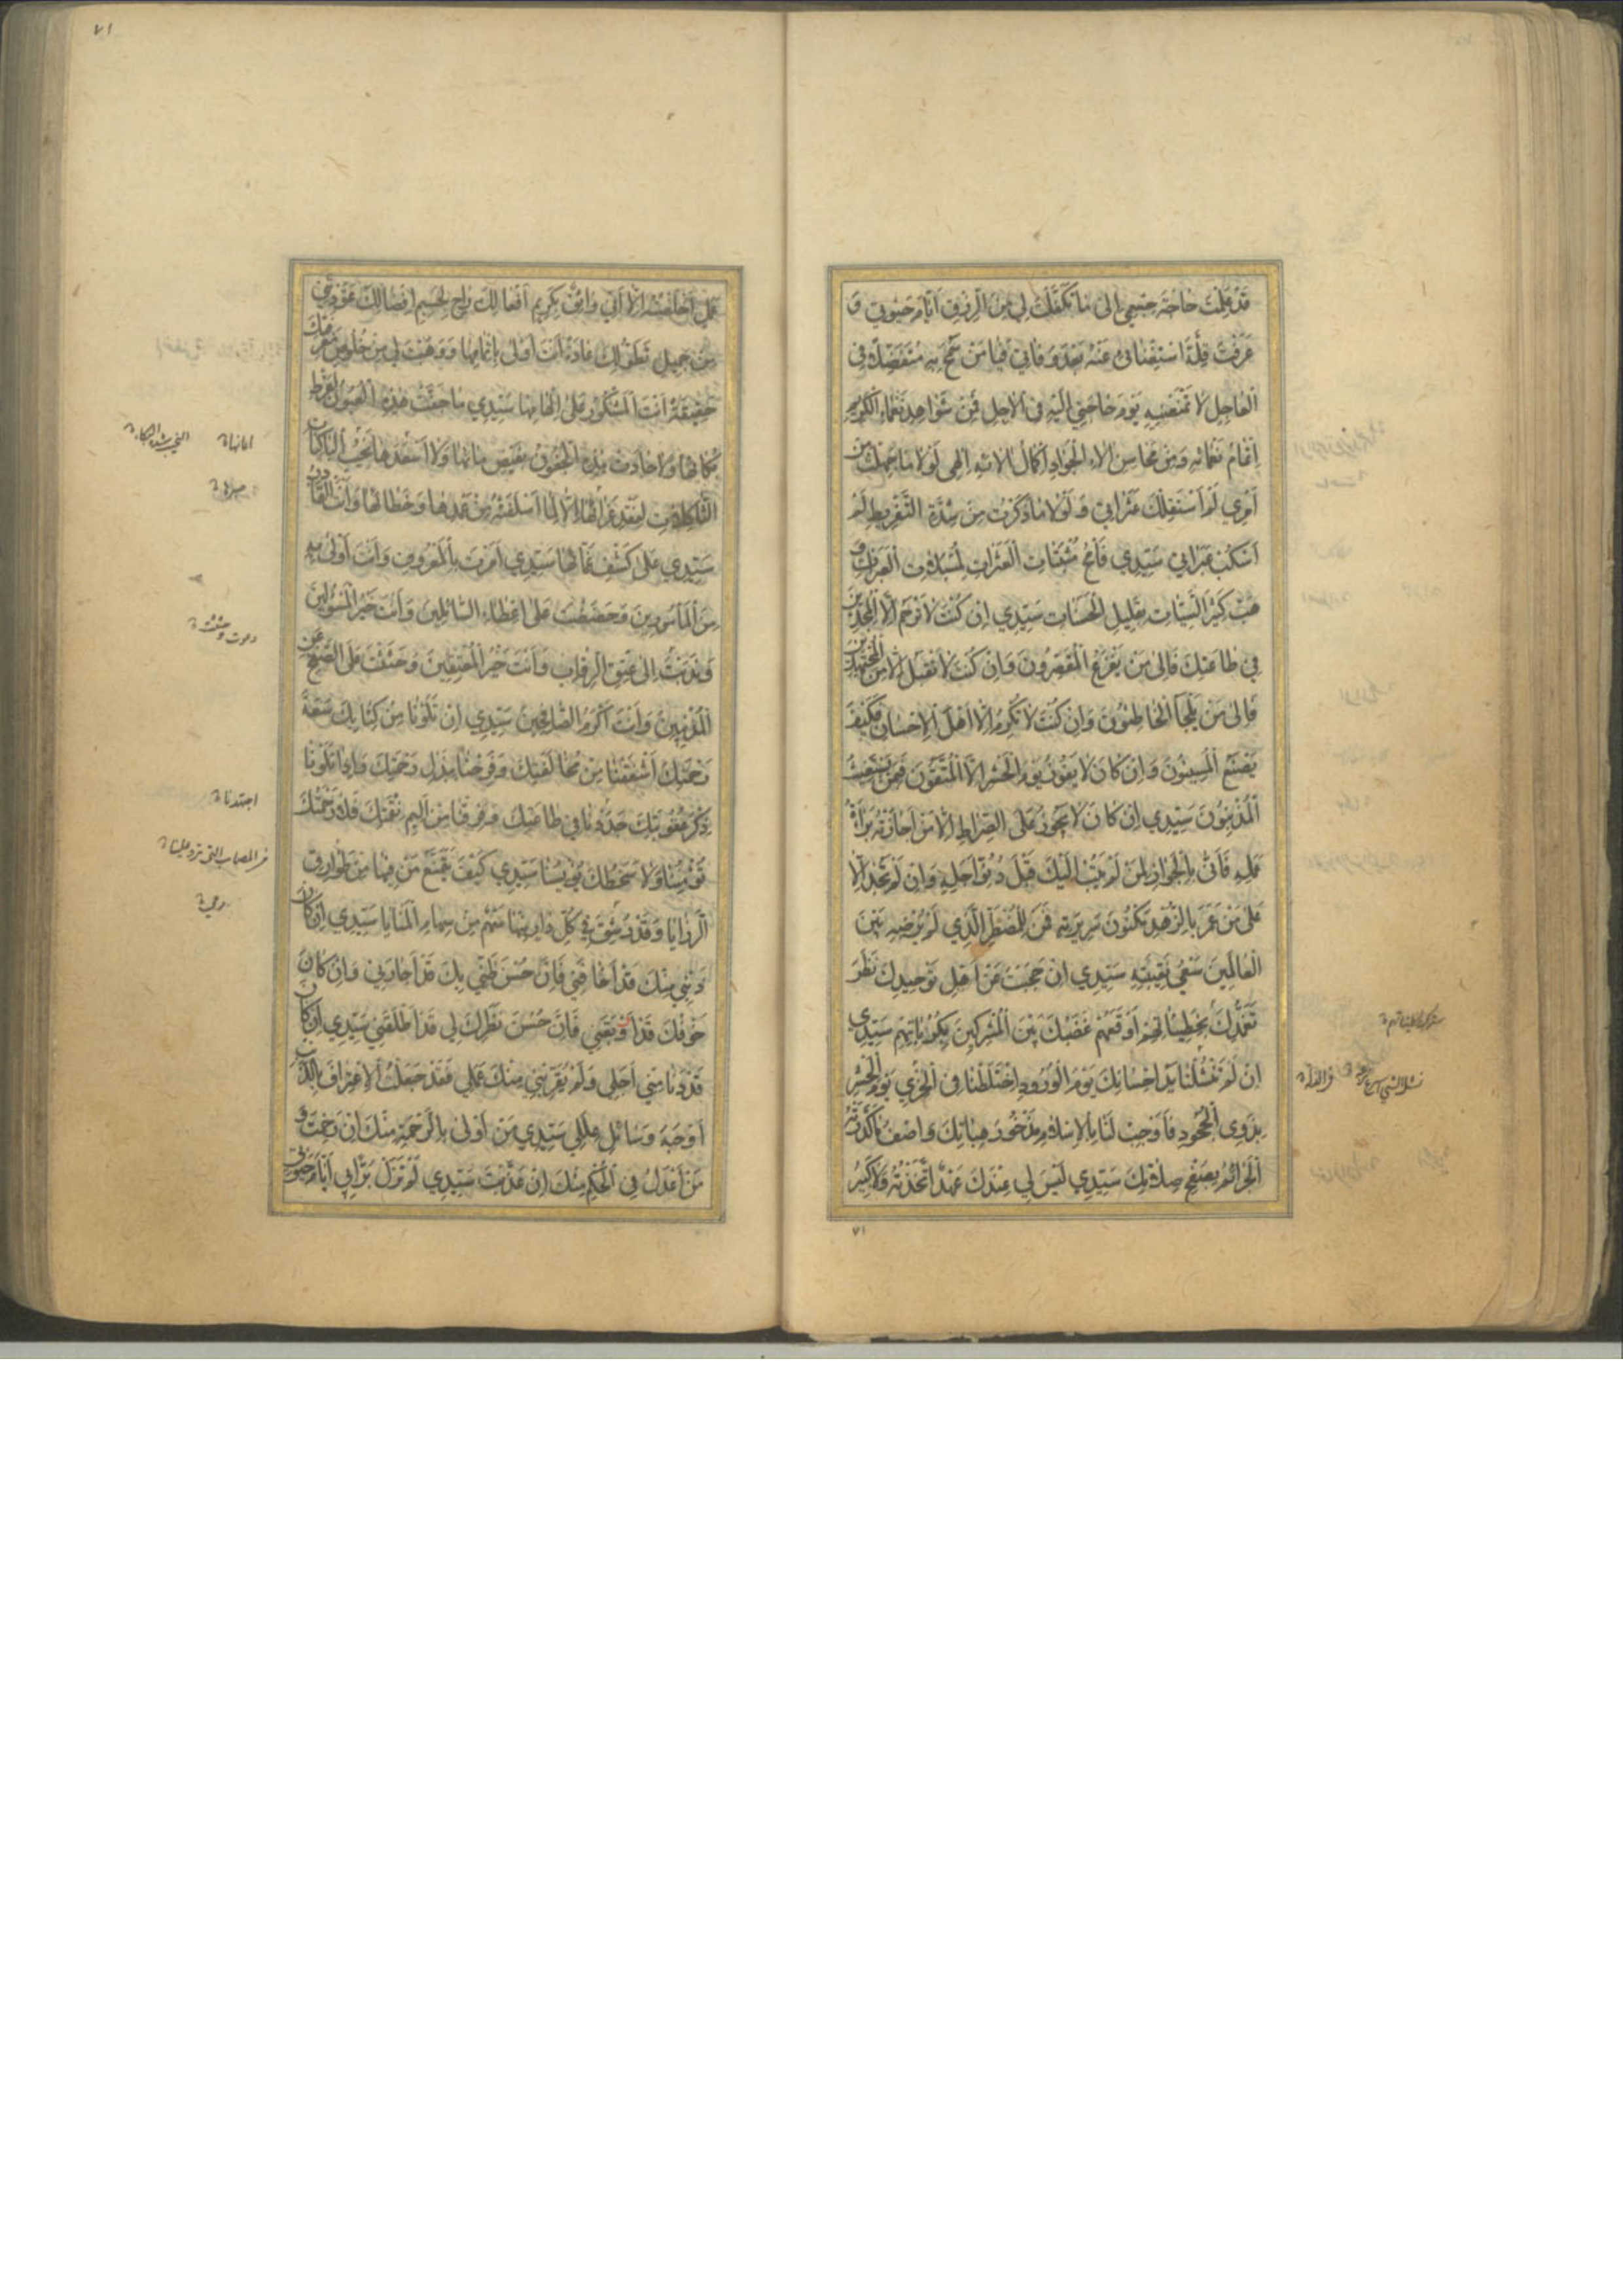 قَدْ عَلِمْتَ حَاجَةَ جِسْمِي إِلَى مَا تَكَفَّلْتَ لِي مِنَ الرِّزْقِ أَيَّامَ حَيٰوتِي وَ
عَرَفْتَ قِلَّةَ اسْتِغْنَائِي عَنْهُ بَعْدَ وَفَاتِي فَيَا مَنْ سَمَحَ بِهِ مُتَفَضِّلًا فِي
الْعَاجِلِ لَا تَمْنَعْنِيهِ يَوْمَ حَاجَتِي إِلَيْهِ فِي الْآجِلِ فَمِنْ شَوَاهِدِ نَعْمَاءِ الْكَرِيمِ
إِتْمَامُ نَعْمَائِهِ وَمِنْ مَحَاسِنِ آلَاءِ الْجَوَادِ إِكْمَالُ آلَائِهِ إِلٰهِي لَوْلَا مَا جَهِلْتُ مِنْ
أَمْرِي لَمْ أَسْتَقِلْكَ عَثَرَاتِي وَلَوْلَا مَا ذَكَرْتُ مِنْ شِدَّةِ التَّفْرِيطِ لَمْ
أَسْكُبْ عَبَرَاتِي سَيِّدِي فَامْحُ مُثْبَتَاتِ الْعَثَرَاتِ لِمُسْبَلَاتِ الْعَبَرَاتِ وَ
هَبْ كَثِيرَ السَّيِّئَاتِ بِقَلِيلِ الْحَسَنَاتِ سَيِّدِي إِنْ كُنْتَ لَا تَرْحَمُ إِلَّا الْمُجِدِّينَ
فِي طَاعَتِكَ فَإِلَى مَنْ يَفْزَعُ الْمُقَصِّرُونَ وَإِنْ كُنْتَ لَا تَقْبَلُ إِلَّا مِنَ الْمُجْتَهِدِينَ
فَإِلَى مَنْ يَلْجَأُ الْخَاطِئُونَ وَإِنْ كُنْتَ لَا تُكْرِمُ إِلَّا أَهْلَ الْإِحْسَانِ فَكَيْفَ
يَصْنَعُ الْمُسِيئُونَ وَإِنْ كَانَ لَا يَفُوزُ يَوْمَ الْحَشْرِ إِلَّا الْمُتَّقُونَ فَبِمَنْ يَسْتَغِيثُ
الْمُذْنِبُونَ سَيِّدِي إِنْ كَانَ لَا يَجُوزُ عَلَى الصِّرَاطِ إِلَّا مَنْ أَجَازَتْهُ بَرَاءَةُ
عَمَلِهِ فَأَنَّى بِالْجَوَازِ لِمَنْ لَمْ يَتُبْ إِلَيْكَ قَبْلَ دُنُوِّ أَجَلِهِ وَإِنْ لَمْ تَجُدْ إِلَّا
عَلَى مَنْ عَمَرَ بِالزُّهْدِ مَكْنُونَ سَرِيرَتِهِ فَمَنْ لِلْمُضْطَرِّ الَّذِي لَمْ يُرْضِهِ بَيْنَ
الْعَالَمِينَ سَعْيُ نَقِيبَتِهِ سَيِّدِي إِنْ حَجَبْتَ عَنْ أَهْلِ تَوْحِيدِكَ نَظَرَ
تَغَمُّدِكَ بِخَطِيئَاتِهِمْ أَوْقَعَهُمْ غَضَبُكَ بَيْنَ الْمُشْرِكِينَ بِكُرُبَاتِهِمْ سَيِّدِي
إِنْ لَمْ تَنْتُشْنَا يَدُ إِحْسَانِكَ يَوْمَ الْوُرُودِ اخْتَلَطْنَا فِي الْخِزْيِ يَوْمَ الْحَشْرِ
بِذَوِي الْجُحُودِ فَأَوْجِبْ لَنَا بِالْإِسْلَامِ مَذْخُورَ هِبَاتِكَ وَاصْفُ مَا كَدَّرَتْهُ
الْجَرَائِمُ بِصَفْحِ صِلَاتِكَ سَيِّدِي لَيْسَ لِي عِنْدَكَ عَهْدٌ اتَّخَذْتُهُ وَلَا كَبِيرُ
٧١
٧١
عَمَلٍ أَخْلَصْتُهُ إِلَّا أَنِّي وَاثِقٌ بِكَرِيمِ أَفْعَالِكَ رَاجٍ لِجَسِيمِ إِفْضَالِكَ عَوَّدْتَنِي
مِنْ جَمِيلِ تَطَوُّلِكَ عَادَةً أَنْتَ أَوْلَى بِإِتْمَامِهَا وَوَهَبْتَ لِي مِنْ خُلُوصِ مَعْرِفَتِكَ
حَقِيقَةً أَنْتَ الْمَشْكُورُ عَلَى إِلْهَامِهَا سَيِّدِي مَا جَفَّتْ هٰذِهِ الْعُيُونُ لِفَرْطِ
بُكَائِهَا وَلَا جَادَتْ هٰذِهِ الْجُفُونُ بِفَيْضِ مَائِهَا وَلَا أَسْعَدَهَا نَحِيبُ الْبَاكِيَاتِ
الثَّاكِلَاتِ لِفَقْدِ عَزَائِهَا إِلَّا لِمَا أَسْلَفَتْهُ مِنْ عَمْدِهَا وَخَطَائِهَا وَأَنْتَ الْقَادِرُ
سَيِّدِي عَلَى كَشْفِ غَمَّائِهَا سَيِّدِي أَمَرْتَ بِالْمَعْرُوفِ وَأَنْتَ أَوْلَى بِهِ
مِنَ الْمَأْمُورِينَ وَحَضَضْتَ عَلَى إِعْطَاءِ السَّائِلِينَ وَأَنْتَ خَيْرُ الْمَسْئُولِينَ
وَنَدَبْتَ إِلَى عِتْقِ الرِّقَابِ وَأَنْتَ خَيْرُ الْمُعْتِقِينَ وَحَثَثْتَ عَلَى الصَّفْحِ عَنِ
الْمُذْنِبِينَ وَأَنْتَ أَكْرَمُ الصَّافِحِينَ سَيِّدِي إِنْ تَلَوْنَا مِنْ كِتَابِكَ سَعَةَ
رَحْمَتِكَ أَشْفَقْنَا مِنْ مُخَالَفَتِكَ وَفَرِحْنَا بِبَذْلِ رَحْمَتِكَ وَإِذَا تَلَوْنَا
ذِكْرَ عُقُوبَتِكَ جَدَدْنَا فِي طَاعَتِكَ وَفَرِقْنَا مِنْ أَلِيمِ نِقْمَتِكَ فَلَا رَحْمَتُكَ
تُؤْمِنُنَا وَلَا سَخَطُكَ يُؤْيِسُنَا سَيِّدِي كَيْفَ يَتَمَنَّعُ مَنْ فِيهَا مِنْ طَوَارِقِ
الرَّزَايَا وَقَدْ رُشِقَ فِي كُلِّ دَارٍ مِنْهَا سَهْمٌ مِنْ سِهَامِ الْمَنَايَا سَيِّدِي إِنْ كَانَ
ذَنْبِي مِنْكَ قَدْ أَخَافَنِي فَإِنَّ حُسْنَ ظَنِّي بِكَ قَدْ أَجَارَنِي وَإِنْ كَانَ
خَوْفُكَ قَدْ أَوْبَقَنِي فَإِنَّ حُسْنَ نَظَرِكَ لِي قَدْ أَطْلَقَنِي سَيِّدِي إِنْ كَانَ
قَدْ دَنَا مِنِّي أَجَلِي وَلَمْ يُقَرِّبْنِي مِنْكَ عَمَلِي فَقَدْ جَعَلْتُ الْاِعْتِرَافَ بِالذَّنْبِ
أَوْجَهَ وَسَائِلِ عِلَلِي سَيِّدِي مَنْ أَوْلَى بِالرَّحْمَةِ مِنْكَ إِنْ رَحِمْتَ وَ
مَنْ أَعْدَلُ فِي الْحُكْمِ مِنْكَ إِنْ عَذَّبْتَ سَيِّدِي لَمْ تَزَلْ بَرًّا بِي أَيَّامَ حَيٰوتِي